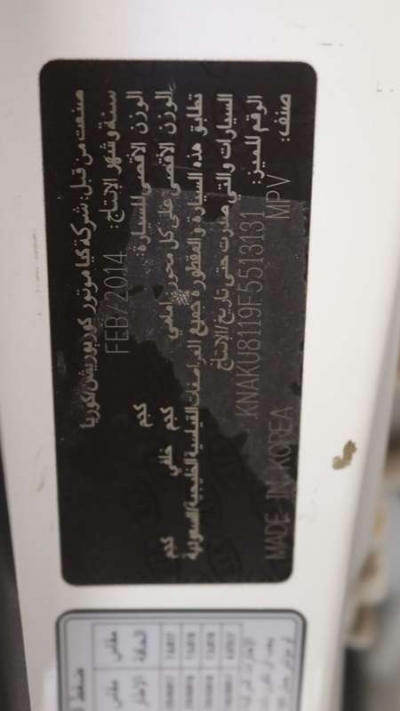 صنعت من قبل: شركة كيا موتور كوربوريشن/كوريا
سنة وشهر الإنتاج: FEB/2014
الوزن الأقصى للسيارة: كجم
الوزن الأقصى على كل محور: أمامي كجم خلفي كجم
تطابق هذه السيارة والمقطورة جميع المواصفات القياسية الخليجية/السعودية
السيارات والتي صدرت حتى تاريخ/الإنتاج
الرقم المميز: KNAKU8119F5513131
صنف: MPV
MADE IN KOREA